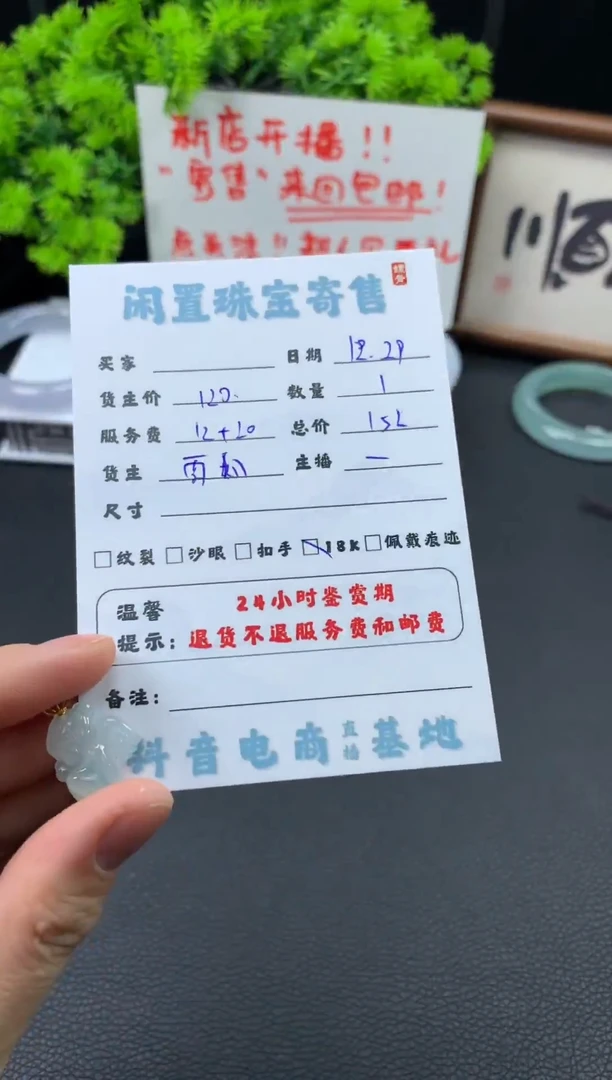 新店开播!!
"寄售"来回包邮!
点关注!!
闲置珠宝寄售
买家 日期 12.29
货主价 120. 数量 1
服务费 12+20 总价 152
货主 主播 一
尺寸
纹裂 沙眼 扣手 18k 佩戴痕迹
温馨 24小时鉴赏期
提示: 退货不退服务费和邮费
备注:
抖音电商直播基地
川